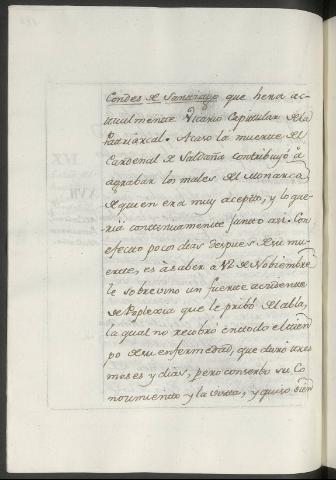 Condes de Santiago que hera ac-
tualmente Vicario Capitular de la
Patriarcal. Acaso la muerte del
Cardenal de Saldaña contribuyó à
agrabar los males del Monarca
de quien era muy acepto, y lo que-
ria continuamente junto assi. Con
efecto pocos dias despues de su mu-
erte, es à saber a VI de Nobiembre
le sobrevino un fuerte accidente
de Poplexia que le pribó del abla,
la qual no recobró en todo el tiem
po de su enfermedad, que duró tres
meses y dias, pero conserbó su Co
noumiento y la vista, y quiso bien